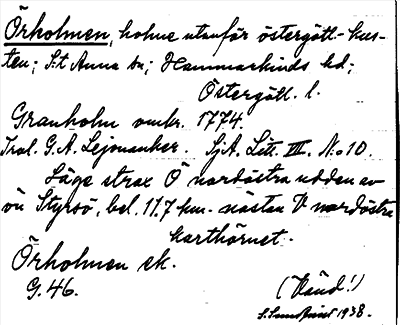 Örholmen, holme utanför östergötl-kus-
ten; S:t Anna sn; Hammarkinds hd;
Östergötl. l.
Granholm omkr. 1774.
G. A. Lejonanker. SjA. Litt. III. No 10.
Läge strax Ö nordöstra udden av
ön Styrsö, bel. 11.7 km. nästan V nordöstra
karthörnet.
Örholmen ek.
G. 46.
(Vänd!)
1938.